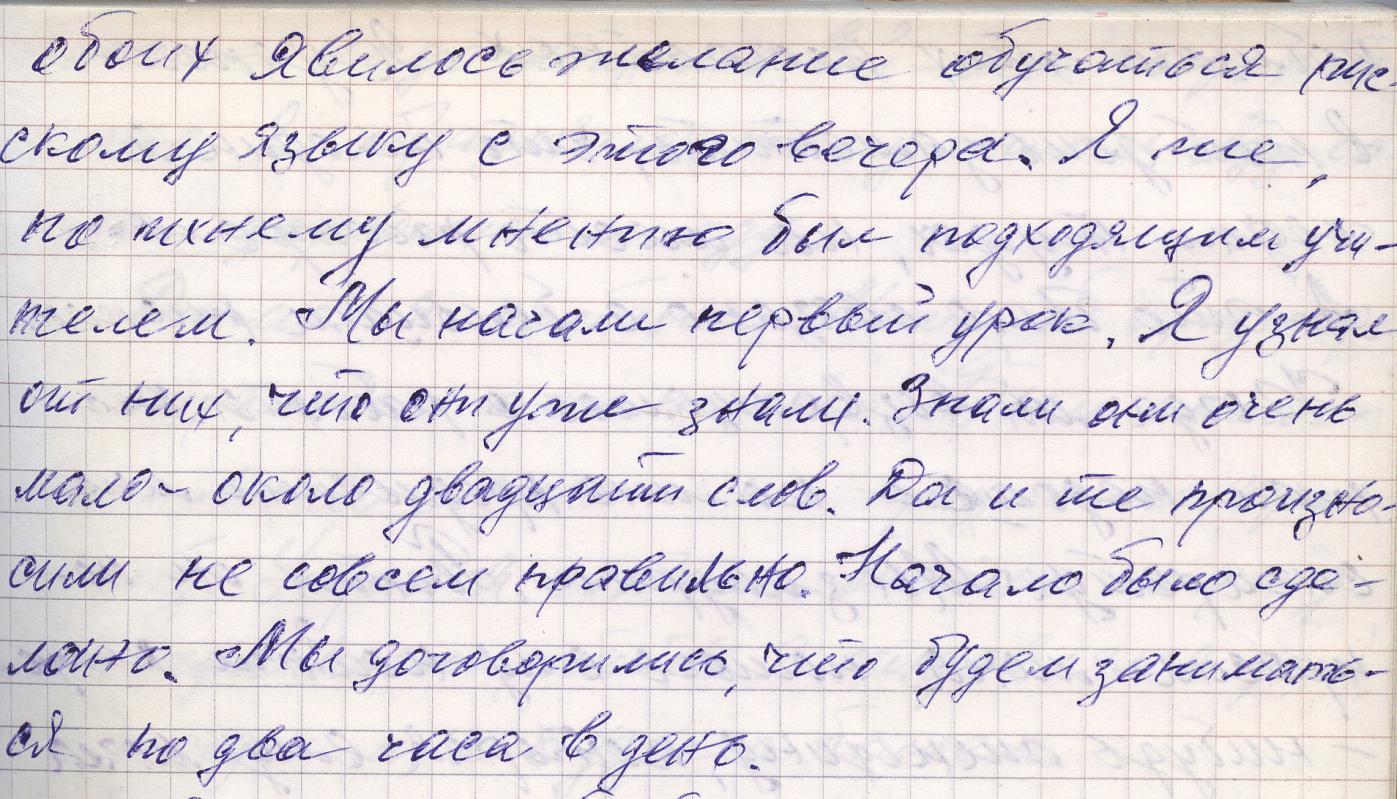 обоих явилось желание обучаться рус-
скому языку с этого вечера. Я же,
по ихнему мнению был подходящим учи-
телем. Мы начали первый урок. Я узнал
от них, что они уже знали. Знали они очень
мало - около двадцати слов. Да и те произно-
сили не совсем правильно. Начало было сде-
лано. Мы договорились, что будем занимать-
ся по два часа в день.